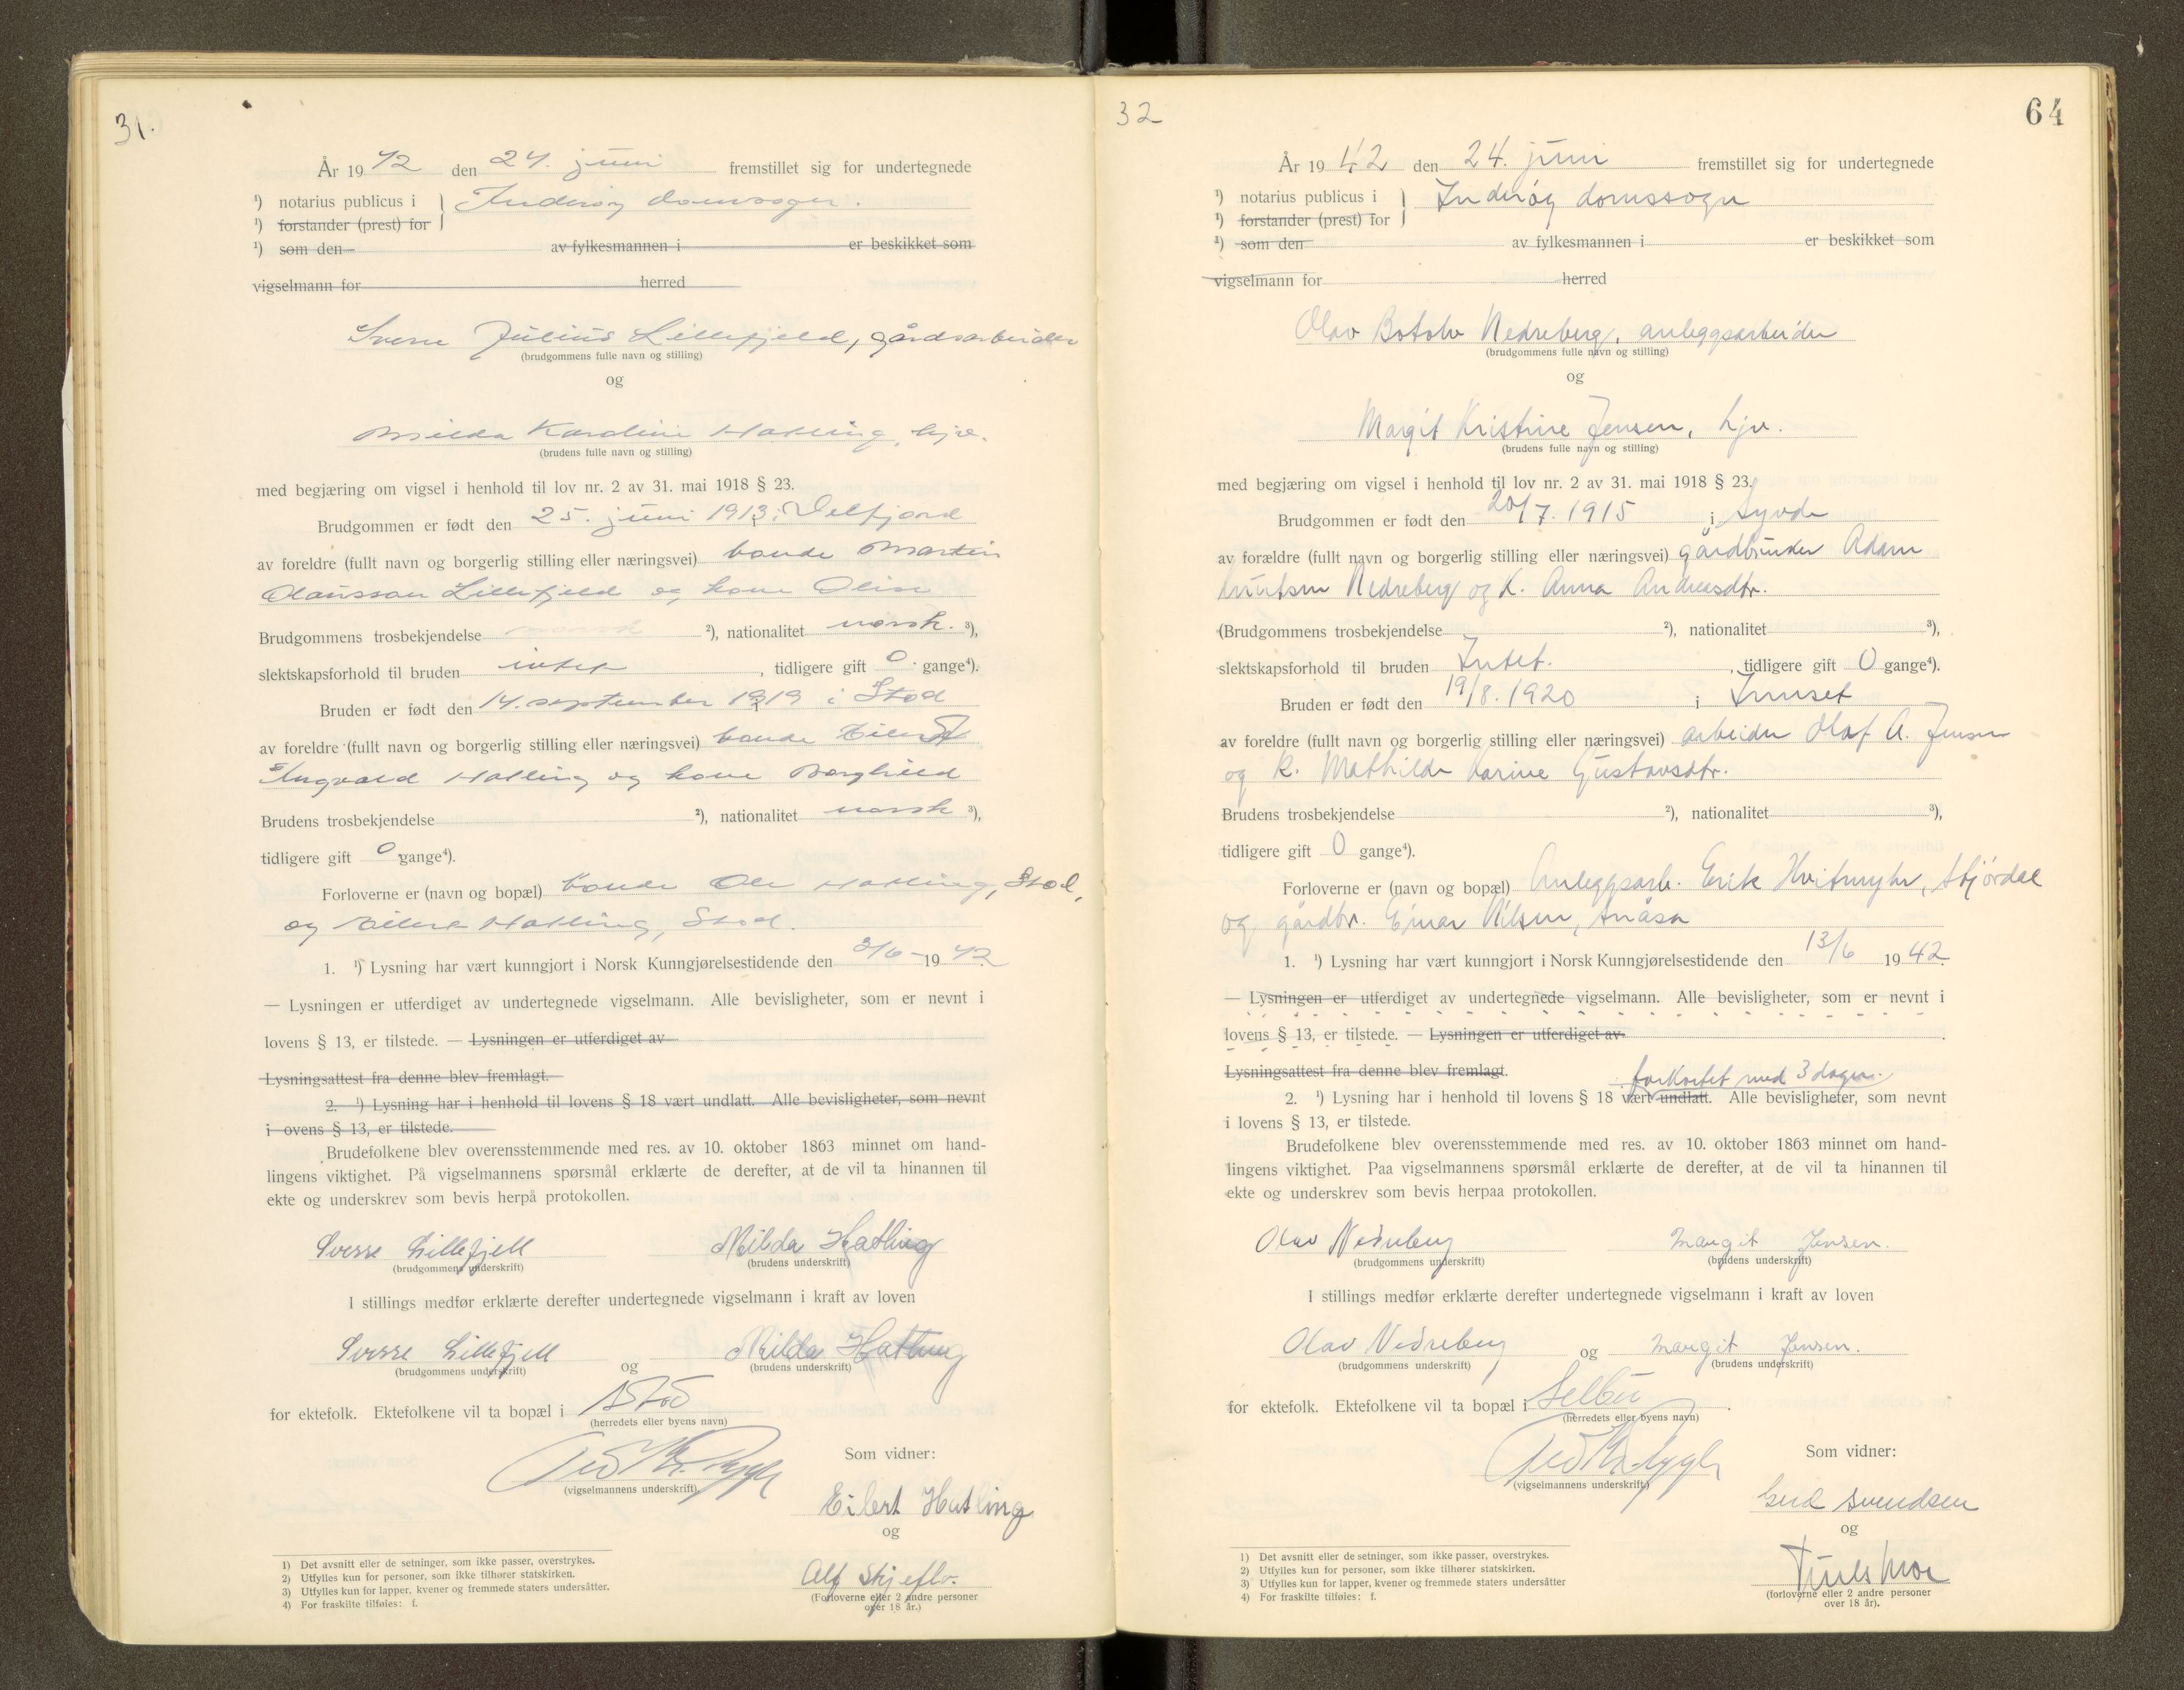 31.
År 1942 den 24. juni fremstillet sig for undertegnede
¹) notarius publicus i } Inderøy domssogn.
¹) forstander (prest) for
¹) som den av fylkesmannen i er beskikket som
vigselmann for herred
Sverre Julius Lillefjeld, gårdsarbeider
(brudgommens fulle navn og stilling)
og
Milda Karoline Hatling, hjv.
(brudens fulle navn og stilling)
med begjæring om vigsel i henhold til lov nr. 2 av 31. mai 1918 § 23.
Brudgommen er født den 25. juni 1913 i Velfjord
av foreldre (fullt navn og borgerlig stilling eller næringsvei) bonde Martin
Olausson Lillefjeld og kone Oline
Brudgommens trosbekjendelse norsk ²), nationalitet norsk. ³),
slektskapsforhold til bruden intet, tidligere gift 0 gange⁴).
Bruden er født den 14. september 1919 i Stod
av foreldre (fullt navn og borgerlig stilling eller næringsvei) bonde Eilert
Ingvald Hatling og kone Borghild
Brudens trosbekjendelse ²), nationalitet norsk ³),
tidligere gift 0 gange⁴).
Forloverne er (navn og bopæl) bonde Ole Hatling, Stod,
og Eilert Hatling, Stod.
1. ¹) Lysning har vært kunngjort i Norsk Kunngjørelsestidende den 3/6 - 1942
— Lysningen er utferdiget av undertegnede vigselmann. Alle bevisligheter, som er nevnt i
lovens § 13, er tilstede. — Lysningen er utferdiget av
Lysningsattest fra denne blev fremlagt.
2. ¹) Lysning har i henhold til lovens § 18 vært undlatt. Alle bevisligheter, som nevnt
i ovens § 13, er tilstede.
Brudefolkene blev overensstemmende med res. av 10. oktober 1863 minnet om hand-
lingens viktighet. På vigselmannens spørsmål erklærte de derefter, at de vil ta hinannen til
ekte og underskrev som bevis herpå protokollen.
Sverre Lillefjell Milda Hatling
(brudgommens underskrift) (brudens underskrift)
I stillings medfør erklærte derefter undertegnede vigselmann i kraft av loven
Sverre Lillefjell og Milda Hatling
(brudgommens underskrift) (brudens underskrift)
for ektefolk. Ektefolkene vil ta bopæl i Stod
(herredets eller byens navn)
Som vidner:
(vigselmannens underskrift)
Eilert Hatling
og
Alf Skjeflo.
(Forloverne eller 2 andre personer
over 18 år.)
1) Det avsnitt eller de setninger, som ikke passer, overstrykes.
2) Utfylles kun for personer, som ikke tilhører statskirken.
3) Utfylles kun for lapper, kvener og fremmede staters undersåtter.
4) For fraskilte tilføies: f.
32
64
År 1942 den 24. juni fremstillet sig for undertegnede
¹) notarius publicus i } Inderøy domssogn
¹) forstander (prest) for
¹) som den av fylkesmannen i er beskikket som
vigselmann for herred
Olav Botolv Nedreberg, anleggsarbeider
(brudgommens fulle navn og stilling)
og
Margit Kristine Jensen, hjv.
(brudens fulle navn og stilling)
med begjæring om vigsel i henhold til lov nr. 2 av 31. mai 1918 § 23.
Brudgommen er født den 20/7. 1915 i Syvde
av forældre (fullt navn og borgerlig stilling eller næringsvei) gårdbruker Adam
Knutsen Nedreberg og k. Anna Andreasdtr.
(Brudgommens trosbekjendelse ²), nationalitet ³),
slektskapsforhold til bruden Intet. tidligere gift 0 gange⁴).
Bruden er født den 19/8. 1920 i Innset
av foreldre (fullt navn og borgerlig stilling eller næringsvei) arbeider Olaf A. Jensen
og k. Mathilde Karine Gustavsdtr.
Brudens trosbekjendelse ²), nationalitet ³),
tidligere gift 0 gange⁴).
Forloverne er (navn og bopæl) Anleggsarb. Erik Hvitmyhr, Stjørdal
og gårdbr. Einar Nilsen, Snåsa
1. ¹) Lysning har vært kunngjort i Norsk Kunngjørelsestidende den 13/6 1942.
— Lysningen er utferdiget av undertegnede vigselmann. Alle bevisligheter, som er nevnt i
lovens § 13, er tilstede. — Lysningen er utferdiget av
Lysningsattest fra denne blev fremlagt.
forkortet med 3 dager.
2. ¹) Lysning har i henhold til lovens § 18 vært undlatt. Alle bevisligheter, som nevnt
i lovens § 13, er tilstede.
Brudefolkene blev overensstemmende med res. av 10. oktober 1863 minnet om hand-
lingens viktighet. Paa vigselmannens spørsmål erklærte de derefter, at de vil ta hinannen til
ekte og underskrev som bevis herpaa protokollen.
Olav Nedreberg Margit Jensen.
(brudgommens underskrift) (brudens underskrift)
I stillings medfør erklærte derefter undertegnede vigselmann i kraft av loven
Olav Nedreberg og Margit Jensen.
(brudgommens underskrift) (brudens underskrift)
for ektefolk. Ektefolkene vil ta bopæl i Selbu
(herredets eller byens navn)
Som vidner:
(vigselmannens underskrift)
Svendsen
og
Moe
(forloverne eller 2 andre personer
over 18 år).
1) Det avsnitt eller de setninger, som ikke passer, overstrykes.
2) Utfylles kun for personer, som ikke tilhører statskirken.
3) Utfylles kun for lapper, kvener og fremmede staters undersåtter
4) For fraskilte tilføies: f.